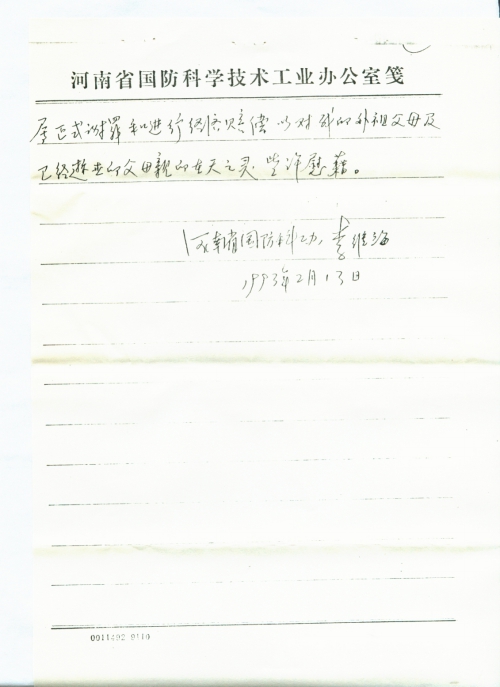 河南省国防科学技术工业办公室笺
正式谢罪和进行经济赔偿以对我的外祖父母及
已经逝世的父母亲的在天之灵些许慰藉。
河南省国防科工办 李维海
1993年2月13日
0041402 9110